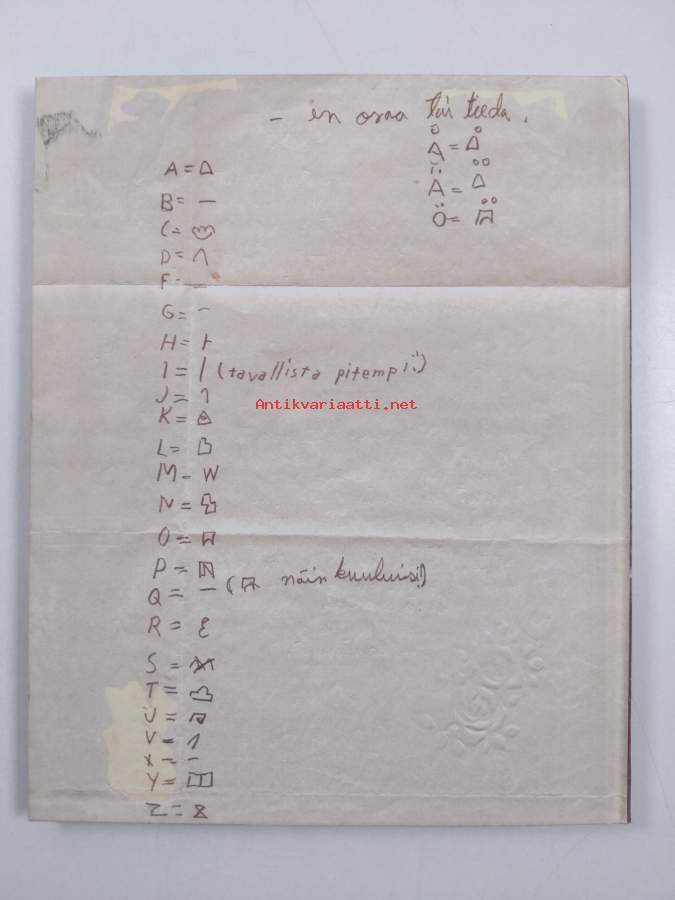 - en osaa tai tiedä.
Å = Δ̊
Ä = Δ̈
Ö =
A = Δ
B = —
C =
D = Λ
F = —
G = –
H = Ͱ
I = | (tavallista pitempi!)
J = 1
K =
L =
M - W
N =
O =
P =
Q = — ( näin kuuluisi!)
R = ξ
S =
T =
U =
V = 1
X = -
Y =
Z =
Antikvariaatti.net